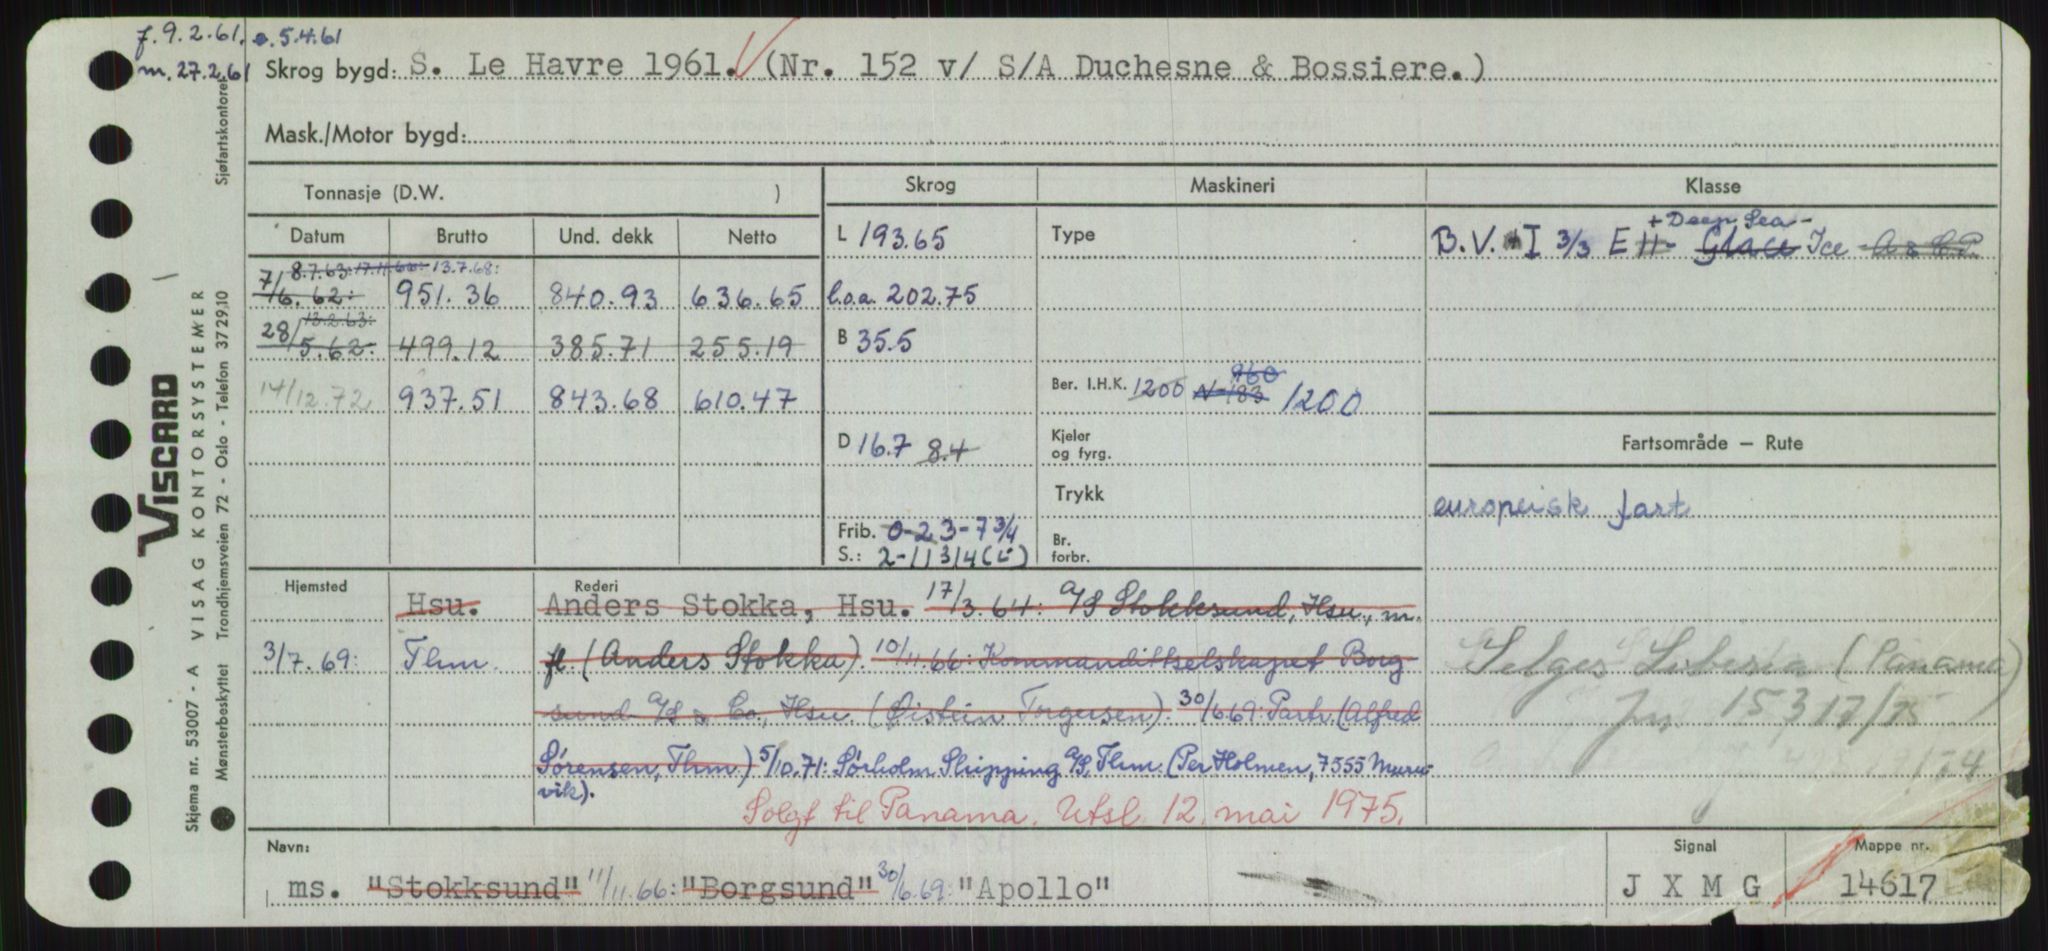 f. 9.2.61. o. 5.4.61
m. 27.2.61 Skrog bygd: S. Le Havre 1961. (Nr. 152 v/ S/A Duchesne & Bossiere.)
Mask./Motor bygd:
Tonnasje (D.W. ) Skrog Maskineri Klasse
Datum Brutto Und. dekk Netto L 193.65 Type
+ Deep Sea -
B.V. I 3/3 E 11- Glace Ice A & C.P.
8.7.63: 17.11.66: 13.7.68:
7/6.62: 951.36 840.93 636.65 l.o.a. 202.75
13.2.63:
28/5.62: 499.12 385.71 255.19 B 35.5
14/12.72 937.51 843.68 610.47 Ber. I.H.K. 1200 N-183 960 1200
D 16.7 8.4 Kjeler og fyrg. Fartsområde – Rute
Trykk europeisk fart
Frib. 0-2 3-7 3/4 Br. forbr.
S.: 2-11 3/4 (L)
Hjemsted Rederi
Hsu. Anders Stokka, Hsu. 17/3.64: A/S Stokksund, Hsu., m.
3/7.69: Thm. fl. (Anders Stokka). 10/11.66: Kommandittselskapet Borg-
sund A/S & Co., Hsu. (Øistein Torgersen). 30/6.69: Partr. (Alfred
Sørensen, Thm.) 5/10.71: Sørholm Shipping A/S, Thm. (Per Holmen, 7555 Muru-
vik).
Solgt til Panama. Utsl. 12. mai 1975.
Selges Liberia (Panama)
jnr. 15317/75
/74
Navn: Signal Mappe nr.
ms. "Stokksund" 11/11.66: "Borgsund" 30/6.69: "Apollo" J X M G 14617
Viscard
VISAG KONTORSYSTEMER
Skjema nr. 53007 - A
Mønsterbeskyttet Trondhjemsveien 72 - Oslo - Telefon 372910
Sjøfartskontoret